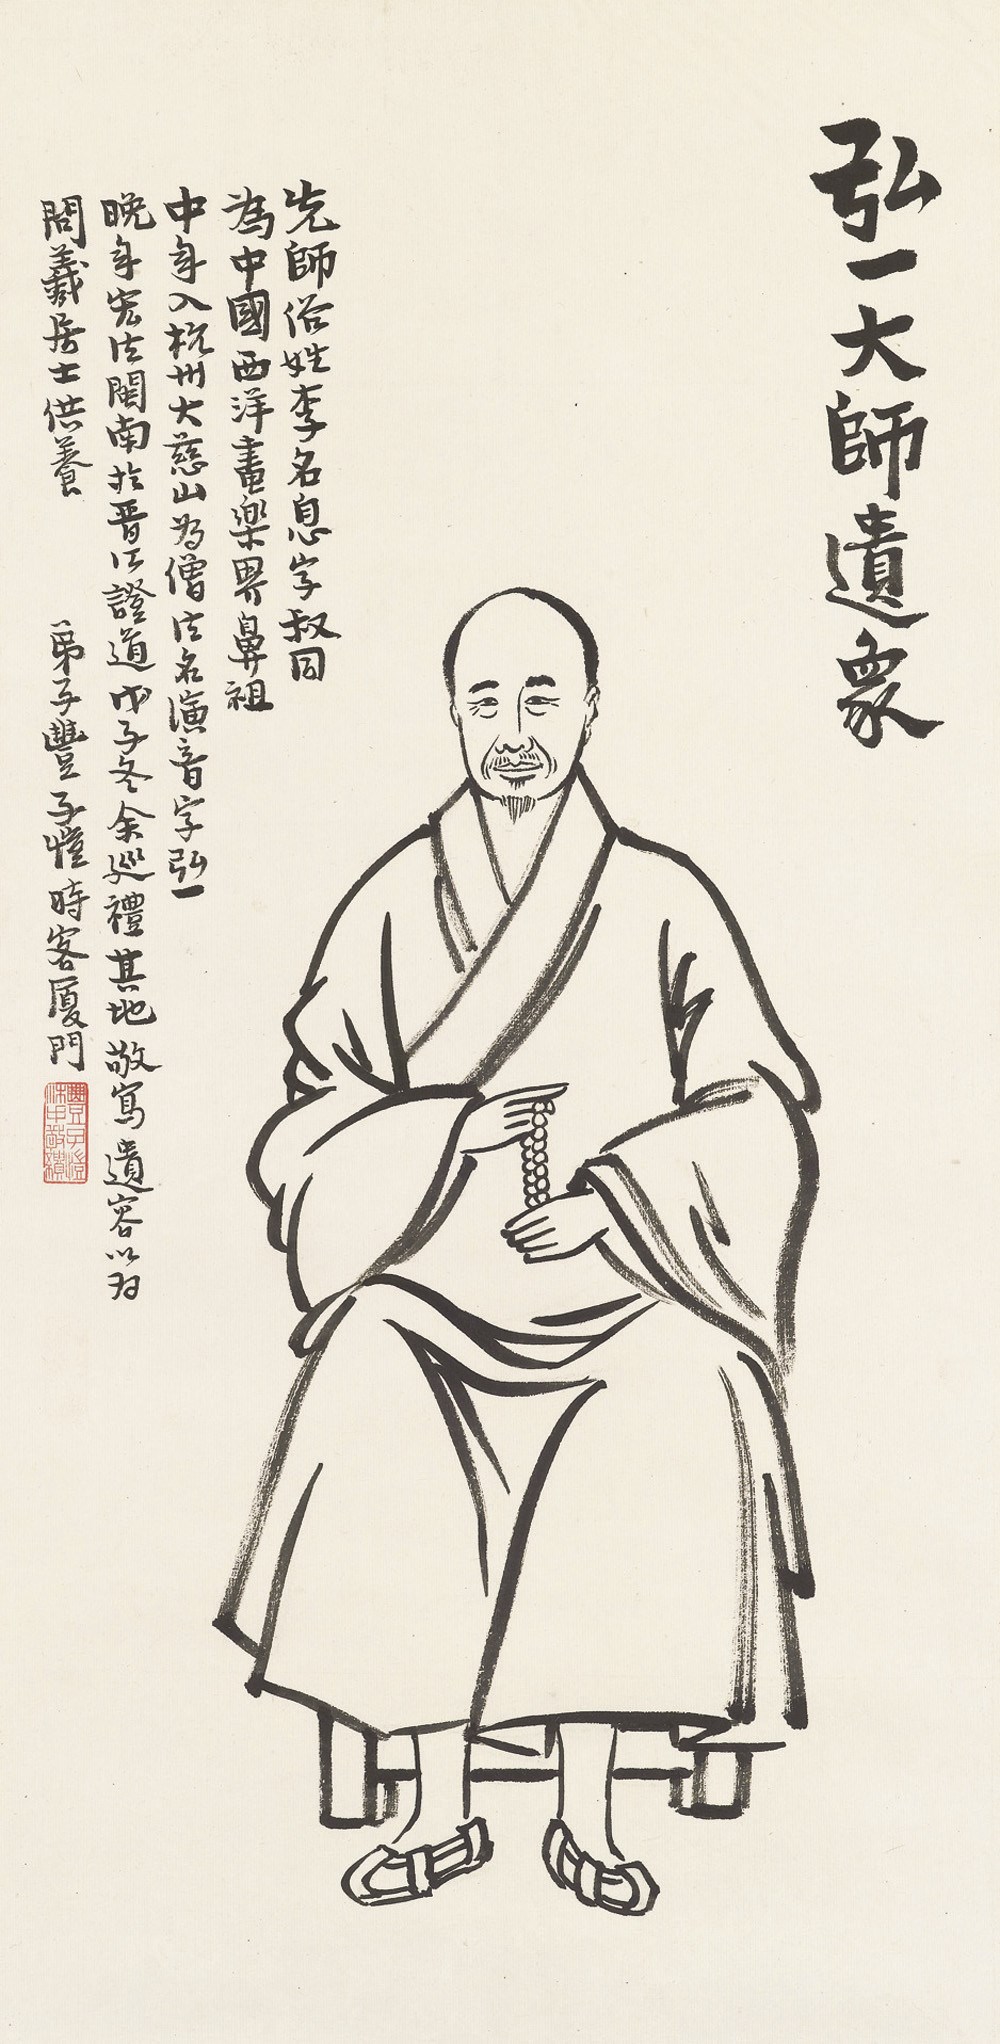 弘一大師遺象
先師俗姓李名息字叔同
為中國西洋畫樂界鼻祖
中年入杭州大慈山為僧法名演音字弘一
晚年宏法閩南於晋江證道戊子冬余巡禮其地敬寫遺容以為
問羲居士供養
弟子豐子愷時客厦門